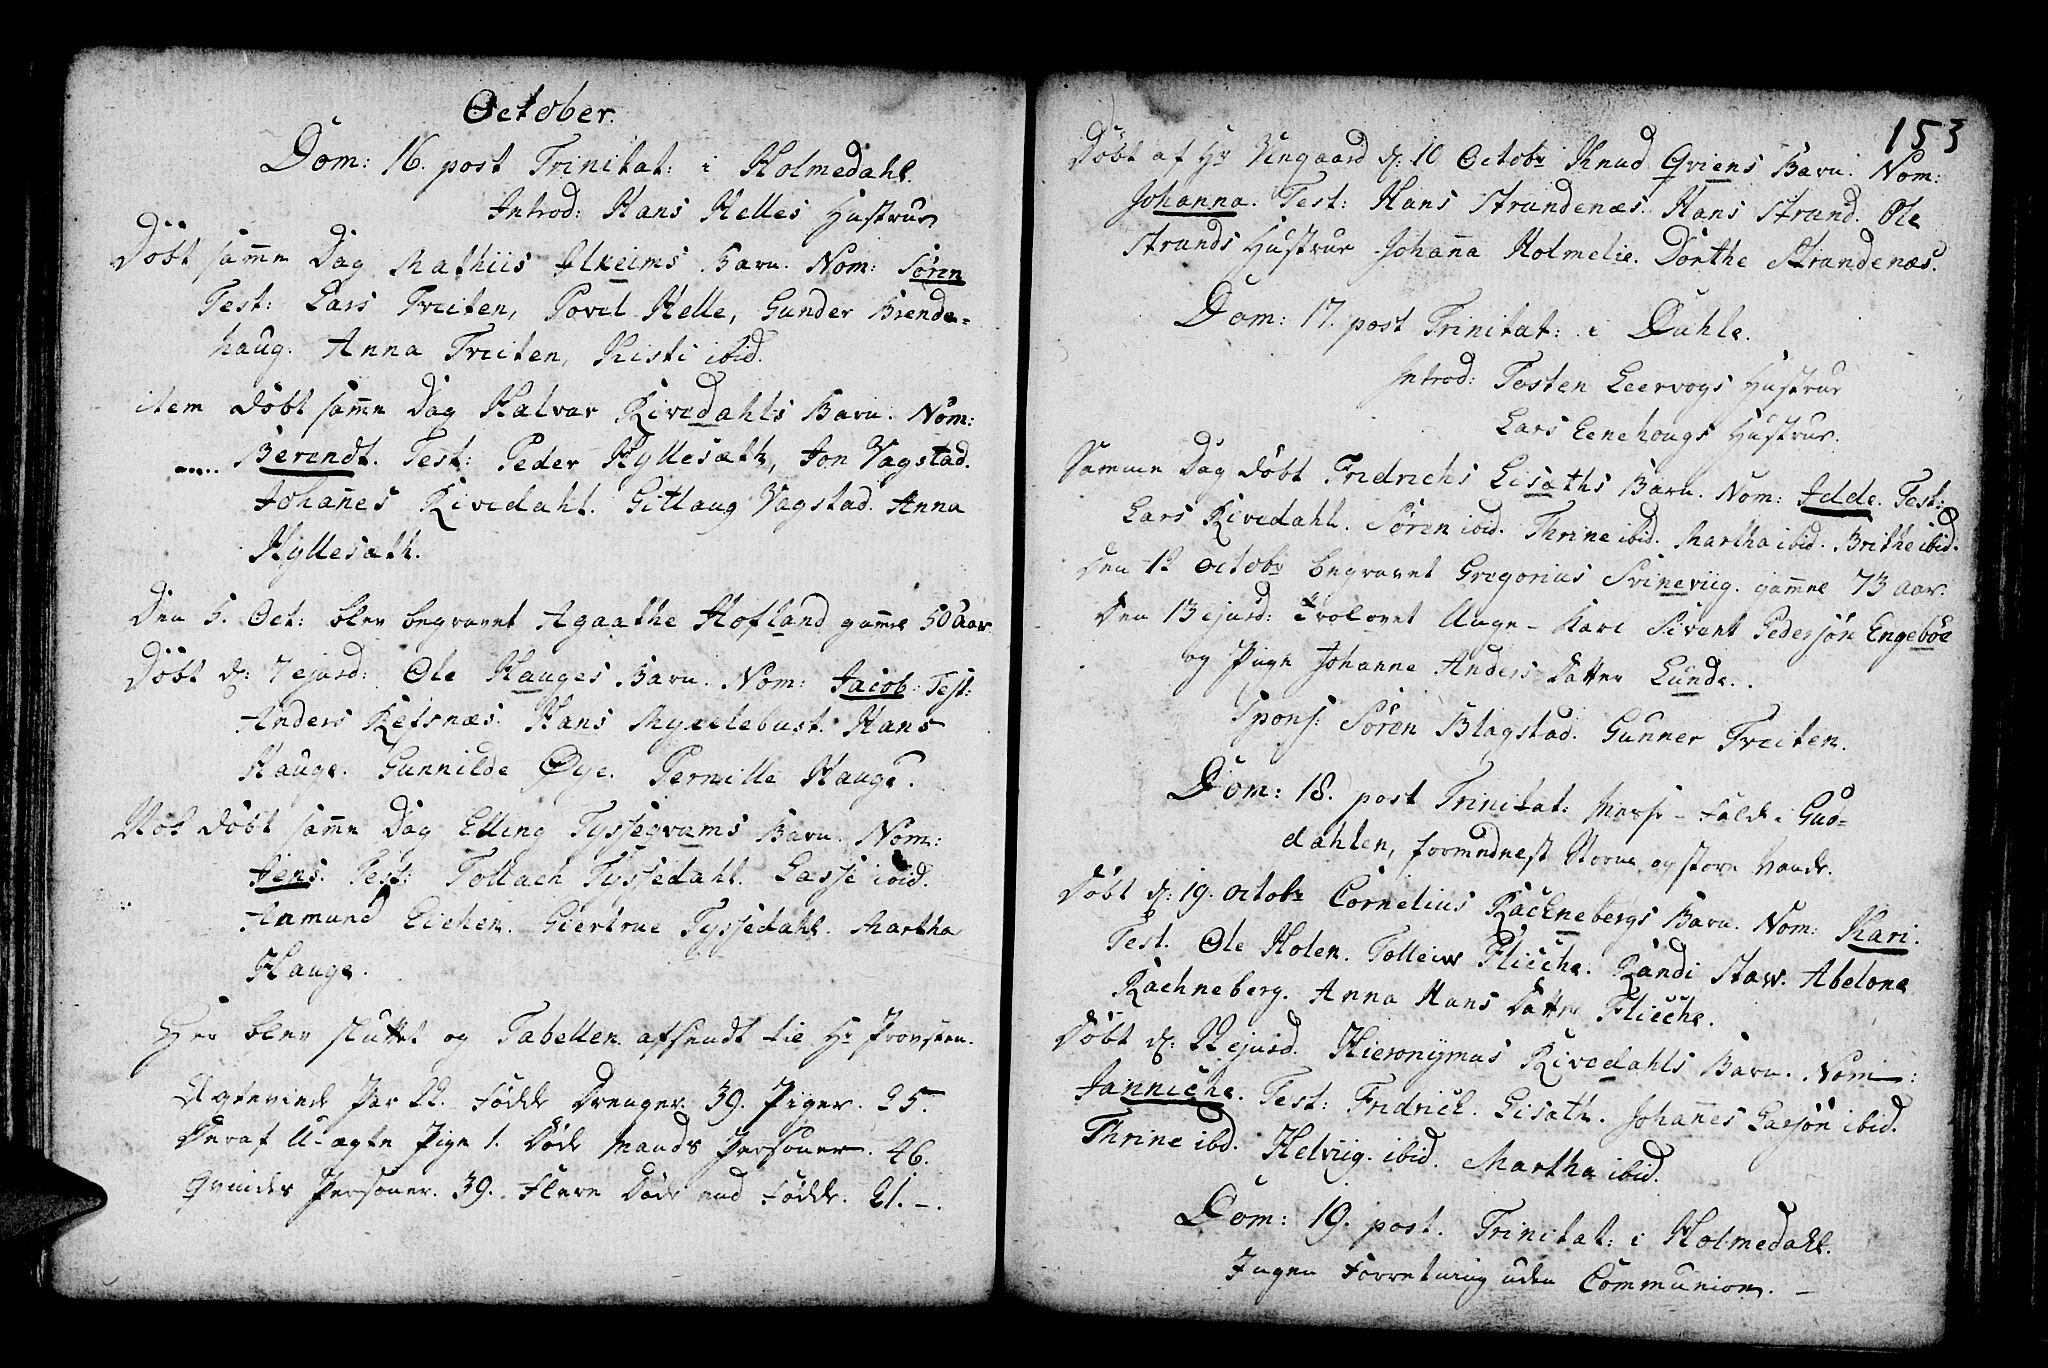 October.
Dom: 16. post Trinitat: i Holmedahl.
Introd: Hans Helles Hustrue
Döbt samme Dag Mathiis Indreims Barn. Nom: Sören
Test: Lars Treiten, Povel Helle, Gunder Brende-
haug. Anna Treiten, Kisti ibid.
item döbt samme Dag Halvar Rivedahls Barn. Nom:
Berendt. Test: Peder Hyllesæth, Jon Vagstad.
Johañes Rivedahl. Gitlaug Vagstad. Anna
Hyllesæth.
Den 5. Oct: blev begravet Agaathe Hofland gamel 50 aar
Döbt d: 7 ejusd: Ole Hauges Barn. Nom: Jacob: Test:
Anders Refsnæs. Hans Myclebust. Hans
Hauge. Gunnilde Øye. Pernille Hauge.
Nok döbt samme Dag Elling Tyssequams Barn. Nom:
Jens. Test: Tollach Tyssedahl. Lasse ibid.
Anmund Eichen. Giertrue Tyssedahl. Martha
Hauge.
Her blev sluttet og Tabellen afsendt til Hr Provsten.
Ægteviede Par 22. Födde Drenger 39. Piger. 25.
Deraf U-ægte Pige 1. Döde Mands Personer. 46.
Qvindes Personer. 39. Flere Döde end Födde. 21. -.
153
Döbt af Hr Vengaard d: 10 Octobr Knud Qviens Barn. Nom:
Johanna. Test: Hans Strandenæs. Hans Strand. Ole
Strands Hustrue Johaña Holmelie. Dorthe Strandenæs.
Dom: 17. post Trinitat: i Dahle.
Introd: Testen Leervogs Hustrue
Lars Eenehougs Hustrue.
Samme Dag döbt Fredrichs Lisæths Barn. Nom: Idde. Test:
Lars Rivedahl. Sören ibid. Thrine ibid. Martha ibid. Brithe ibid.
Den 12 Octobr begravet Gregorius Svineviig. gammel 73 aar.
Den 13 ejusd: Trolovet Unge-Karl Sivert Pedersön Engeböe
og Pige Johanne Anders Datter Lunde.
Spons: Sören Blagstad. Gunner Treiten.
Dom: 18. post Trinitat: Messe-Fald i Gud-
dahlen, formedelst Storm og store Vande.
Döbt d: 19. Octobr Cornelius Rachnebergs Barn. Nom: Kari.
Test. Ole Holen. Tolleiv Fliche. Randi Staw. Abelone
Rachneberg. Anna Hans Datter Fliche.
Döbt d: 22 ejusd. Hieronymus Rivedahls Barn. Nom:
Janniche. Test: Fredrich Lisæth. Johañes Larsön ibid.
Thrine ibd. Helviig. ibid. Martha ibid.
Dom: 19. post. Trinitat: i Holmedahl.
Ingen Forretning uden Communion. -